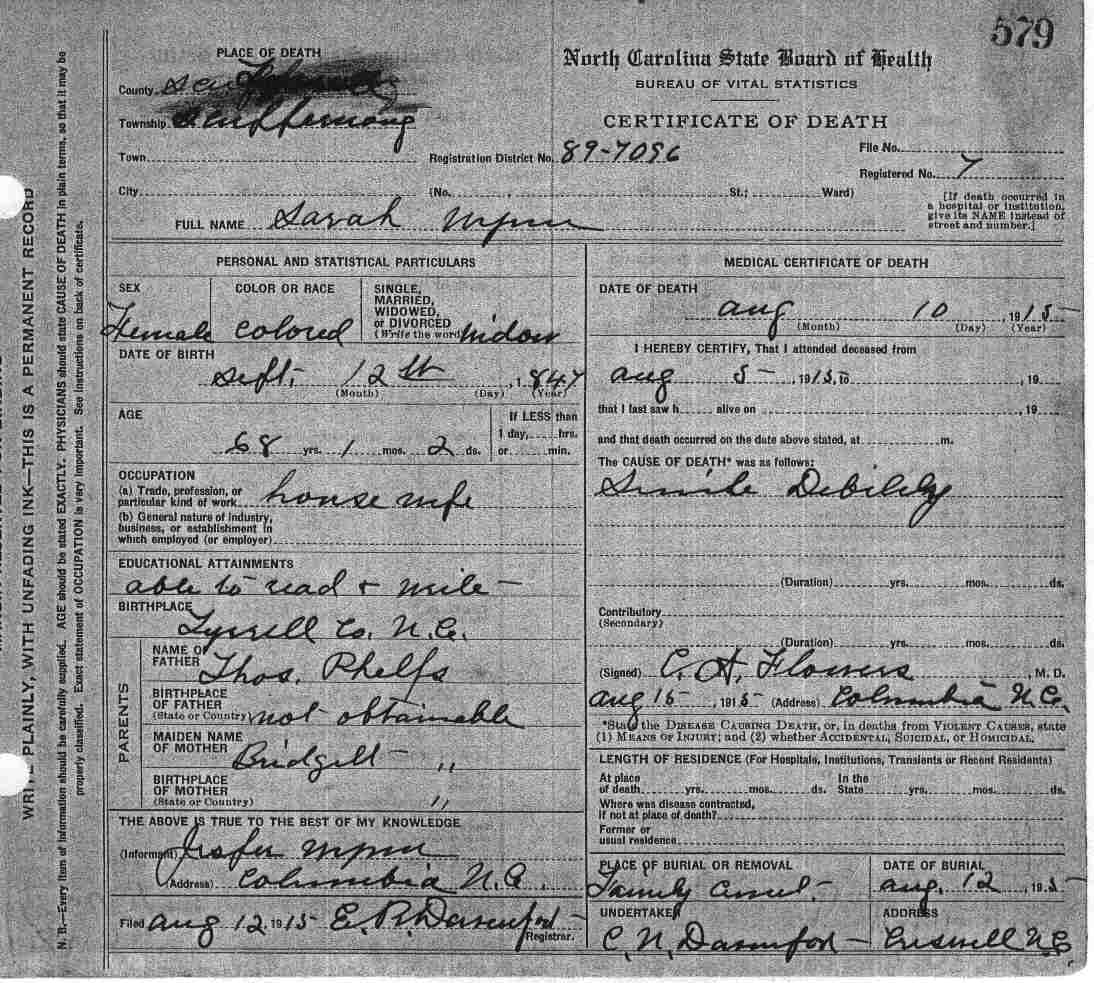 579
PLACE OF DEATH
North Carolina State Board of Health
BUREAU OF VITAL STATISTICS
CERTIFICATE OF DEATH
County
Township Scuppernong
Town
Registration District No. 89-7096
File No.
Registered No. 7
City
(No. St.; Ward)
[If death occurred in
a hospital or institution,
give its NAME instead of
street and number.]
FULL NAME Sarah
WRITE PLAINLY, WITH UNFADING INK—THIS IS A PERMANENT RECORD
N. B.—Every item of information should be carefully supplied. AGE should be stated EXACTLY. PHYSICIANS should state CAUSE OF DEATH in plain terms, so that it may be
properly classified. Exact statement of OCCUPATION is very important. See instructions on back of certificate.
PERSONAL AND STATISTICAL PARTICULARS
SEX
Female
COLOR OR RACE
Colored
SINGLE,
MARRIED,
WIDOWED,
or DIVORCED
(Write the word) Widow
DATE OF BIRTH
Sept. 12th, 1847
(Month) (Day) (Year)
AGE
68 yrs. 1 mos. 2 ds.
If LESS than
1 day, hrs.
or min.
OCCUPATION
(a) Trade, profession, or
particular kind of work house wife
(b) General nature of industry,
business, or establishment in
which employed (or employer)
EDUCATIONAL ATTAINMENTS
able to read & write
BIRTHPLACE
Tyrrell Co. N.C.
PARENTS
NAME OF
FATHER
Thos. Phelps
BIRTHPLACE
OF FATHER
(State or Country) not obtainable
MAIDEN NAME
OF MOTHER
Bridgett "
BIRTHPLACE
OF MOTHER
(State or Country) "
THE ABOVE IS TRUE TO THE BEST OF MY KNOWLEDGE
(Informant)
(Address) Columbia N.C.
Filed Aug 12 1915 E. R. Davenport
Registrar.
MEDICAL CERTIFICATE OF DEATH
DATE OF DEATH
Aug 10 1915
(Month) (Day) (Year)
I HEREBY CERTIFY, That I attended deceased from
Aug 5, 1915, to , 19
that I last saw h alive on , 19
and that death occurred on the date above stated, at m.
The CAUSE OF DEATH* was as follows:
Senile Debility
(Duration) yrs. mos. ds.
Contributory
(Secondary)
(Duration) yrs. mos. ds.
(Signed) C. H. Flowers, M. D.
Aug 15, 1915 (Address) Columbia N.C.
*State the DISEASE CAUSING DEATH, or, in deaths from VIOLENT CAUSES, state
(1) MEANS OF INJURY; and (2) whether ACCIDENTAL, SUICIDAL, or HOMICIDAL.
LENGTH OF RESIDENCE (For Hospitals, Institutions, Transients or Recent Residents)
At place
of death yrs. mos. ds.
In the
State yrs. mos. ds.
Where was disease contracted,
if not at place of death?
Former or
usual residence
PLACE OF BURIAL OR REMOVAL
Family
DATE OF BURIAL
Aug. 12, 1915
UNDERTAKER
C. N. Davenport
ADDRESS
Creswell N.C.